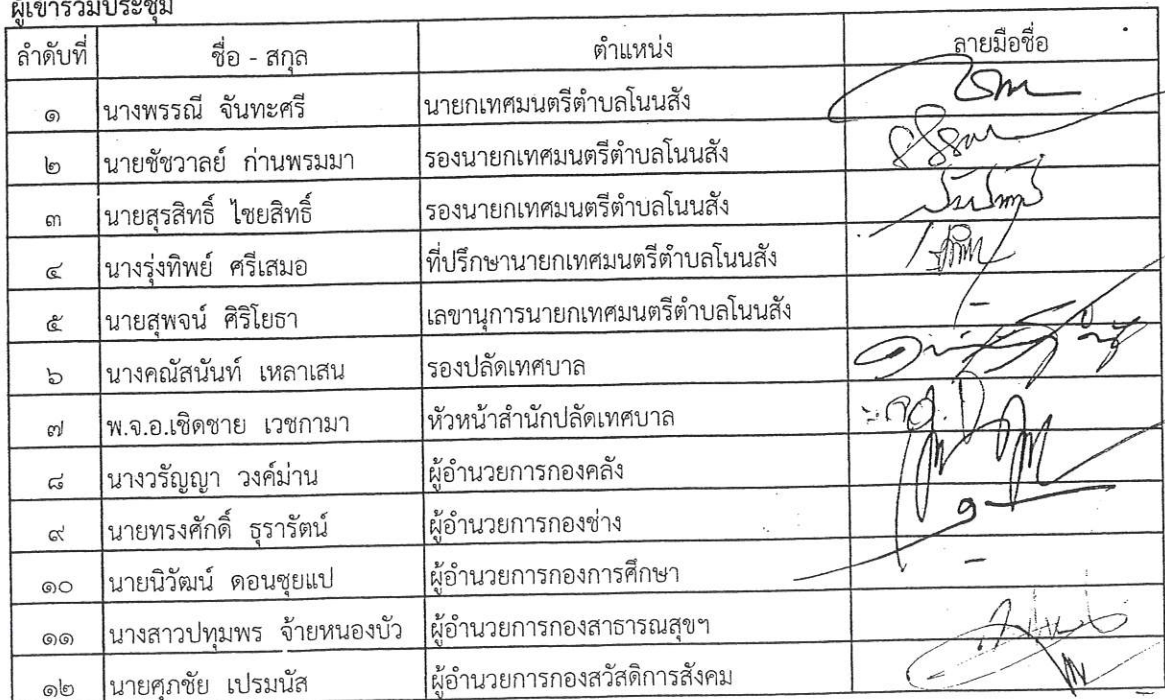 ผู้เข้าร่วมประชุม
ลำดับที่ ชื่อ - สกุล ตำแหน่ง ลายมือชื่อ
๑ นางพรรณี จันทะศรี นายกเทศมนตรีตำบลโนนสัง
๒ นายชัชวาลย์ ก่านพรมมา รองนายกเทศมนตรีตำบลโนนสัง
๓ นายสุรสิทธิ์ ไชยสิทธิ์ รองนายกเทศมนตรีตำบลโนนสัง
๔ นางรุ่งทิพย์ ศรีเสมอ ที่ปรึกษานายกเทศมนตรีตำบลโนนสัง
๕ นายสุพจน์ ศิริโยธา เลขานุการนายกเทศมนตรีตำบลโนนสัง -
๖ นางคณัสนันท์ เหลาเสน รองปลัดเทศบาล
๗ พ.จ.อ.เชิดชาย เวชกามา หัวหน้าสำนักปลัดเทศบาล
๘ นางวรัญญา วงค์ม่าน ผู้อำนวยการกองคลัง
๙ นายทรงศักดิ์ ธุรารัตน์ ผู้อำนวยการกองช่าง
๑๐ นายนิวัฒน์ ดอนซุยแป ผู้อำนวยการกองการศึกษา -
๑๑ นางสาวปทุมพร จ้ายหนองบัว ผู้อำนวยการกองสาธารณสุขฯ
๑๒ นายศุภชัย เปรมนัส ผู้อำนวยการกองสวัสดิการสังคม